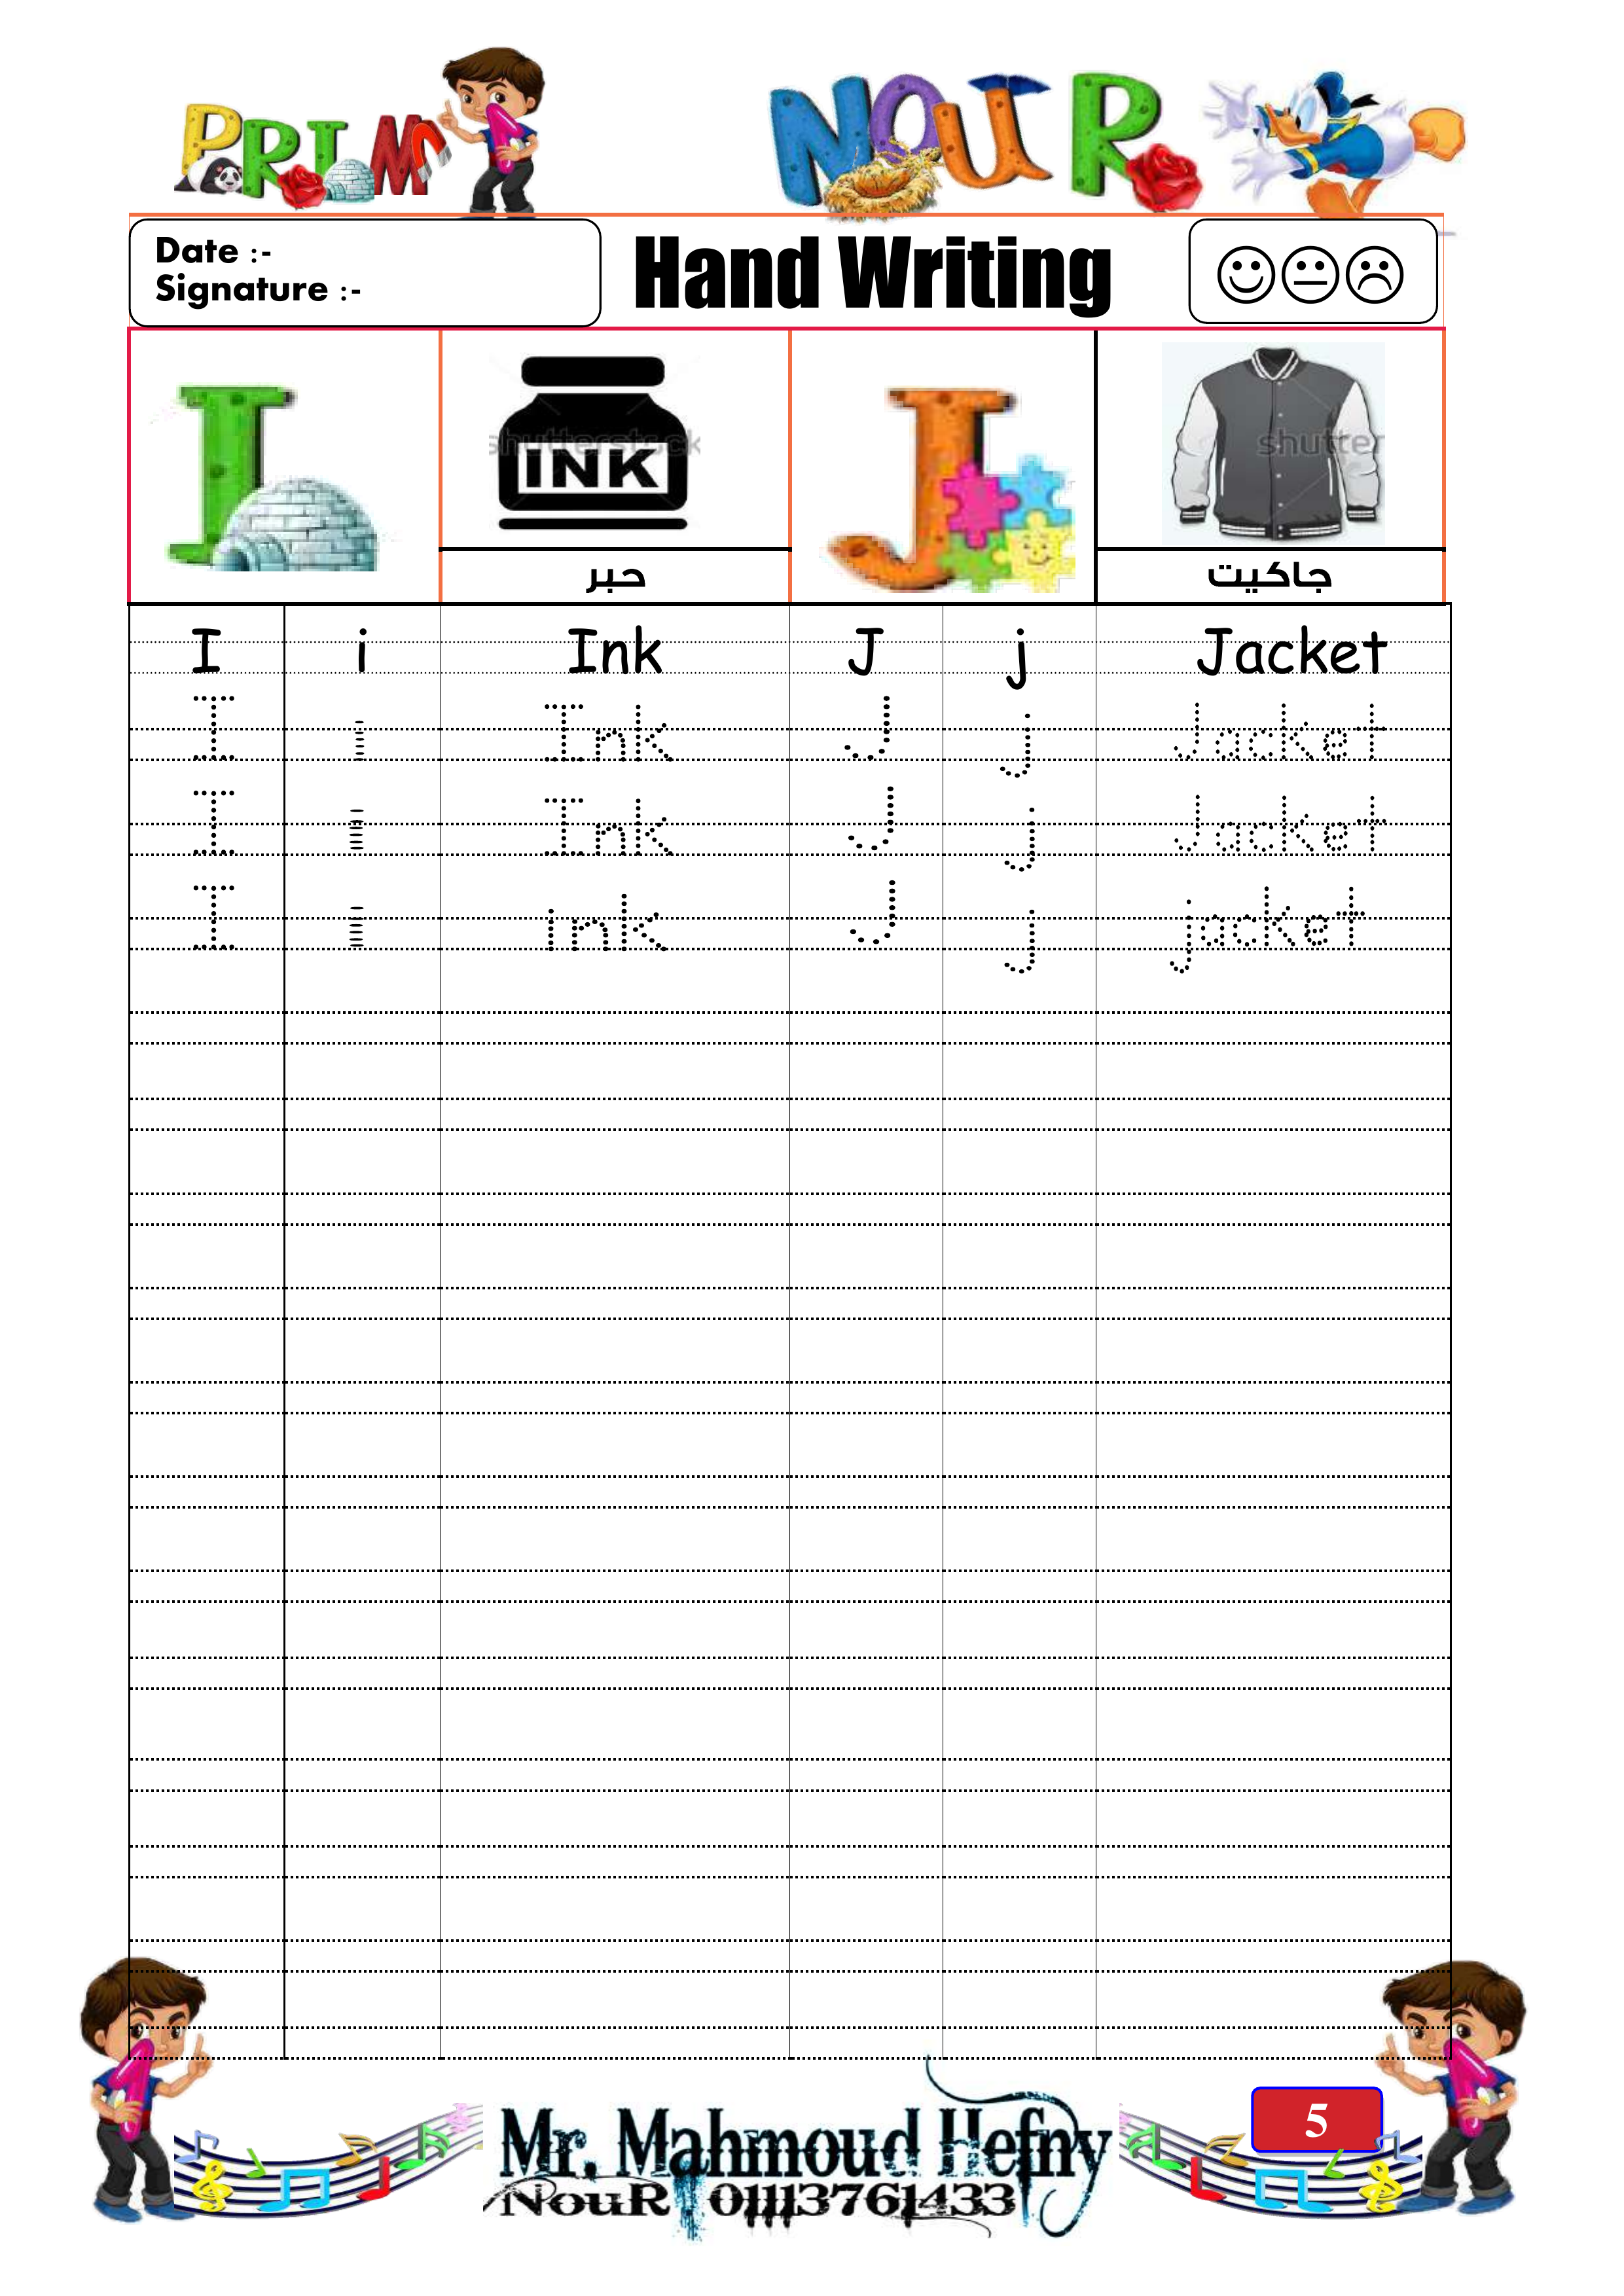 PRIM 1 NOUR
Date :-
Signature :-
Hand Writing
I
shutterstock
INK
J
shutter
حبر
جاكيت
I i Ink J j Jacket
I i Ink J j Jacket
I i Ink J j Jacket
I i ink J j jacket
5
Mr. Mahmoud Hefny
NouR 01113761433